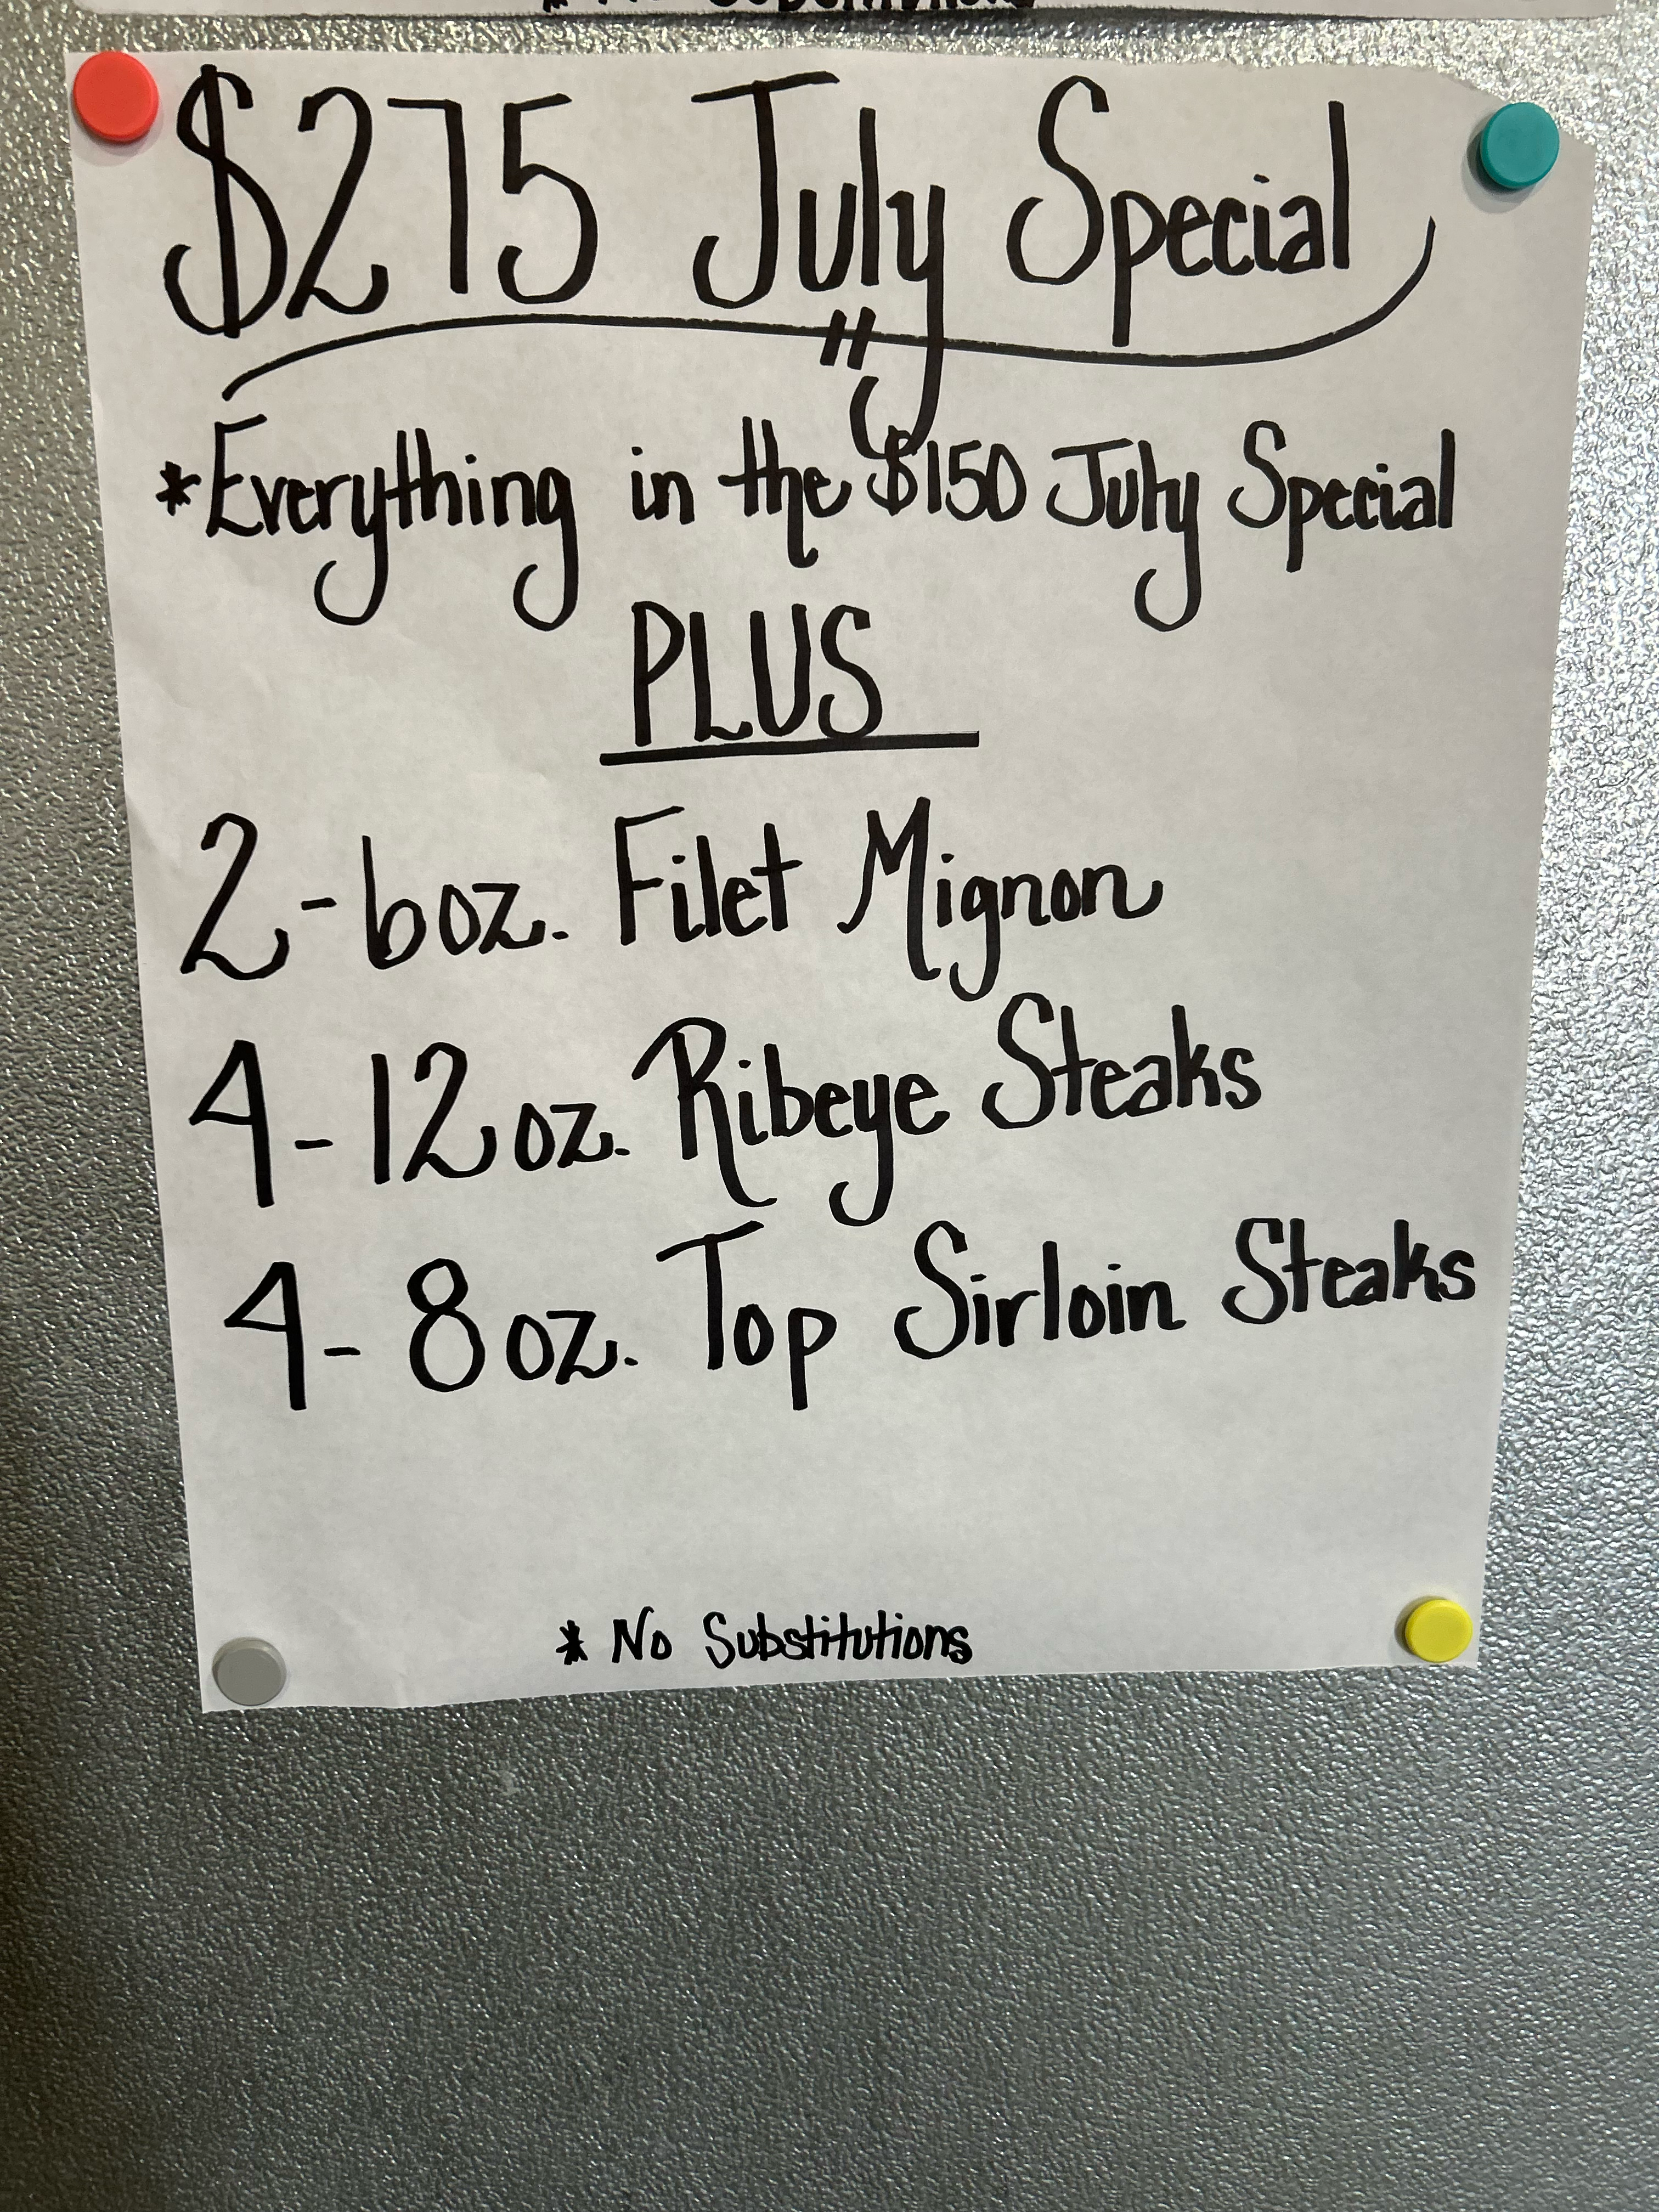 * No Substitutions
$275 July Special
*Everything in the $150 July Special
PLUS
2-6oz. Filet Mignon
4-12oz. Ribeye Steaks
4-8oz. Top Sirloin Steaks
* No Substitutions